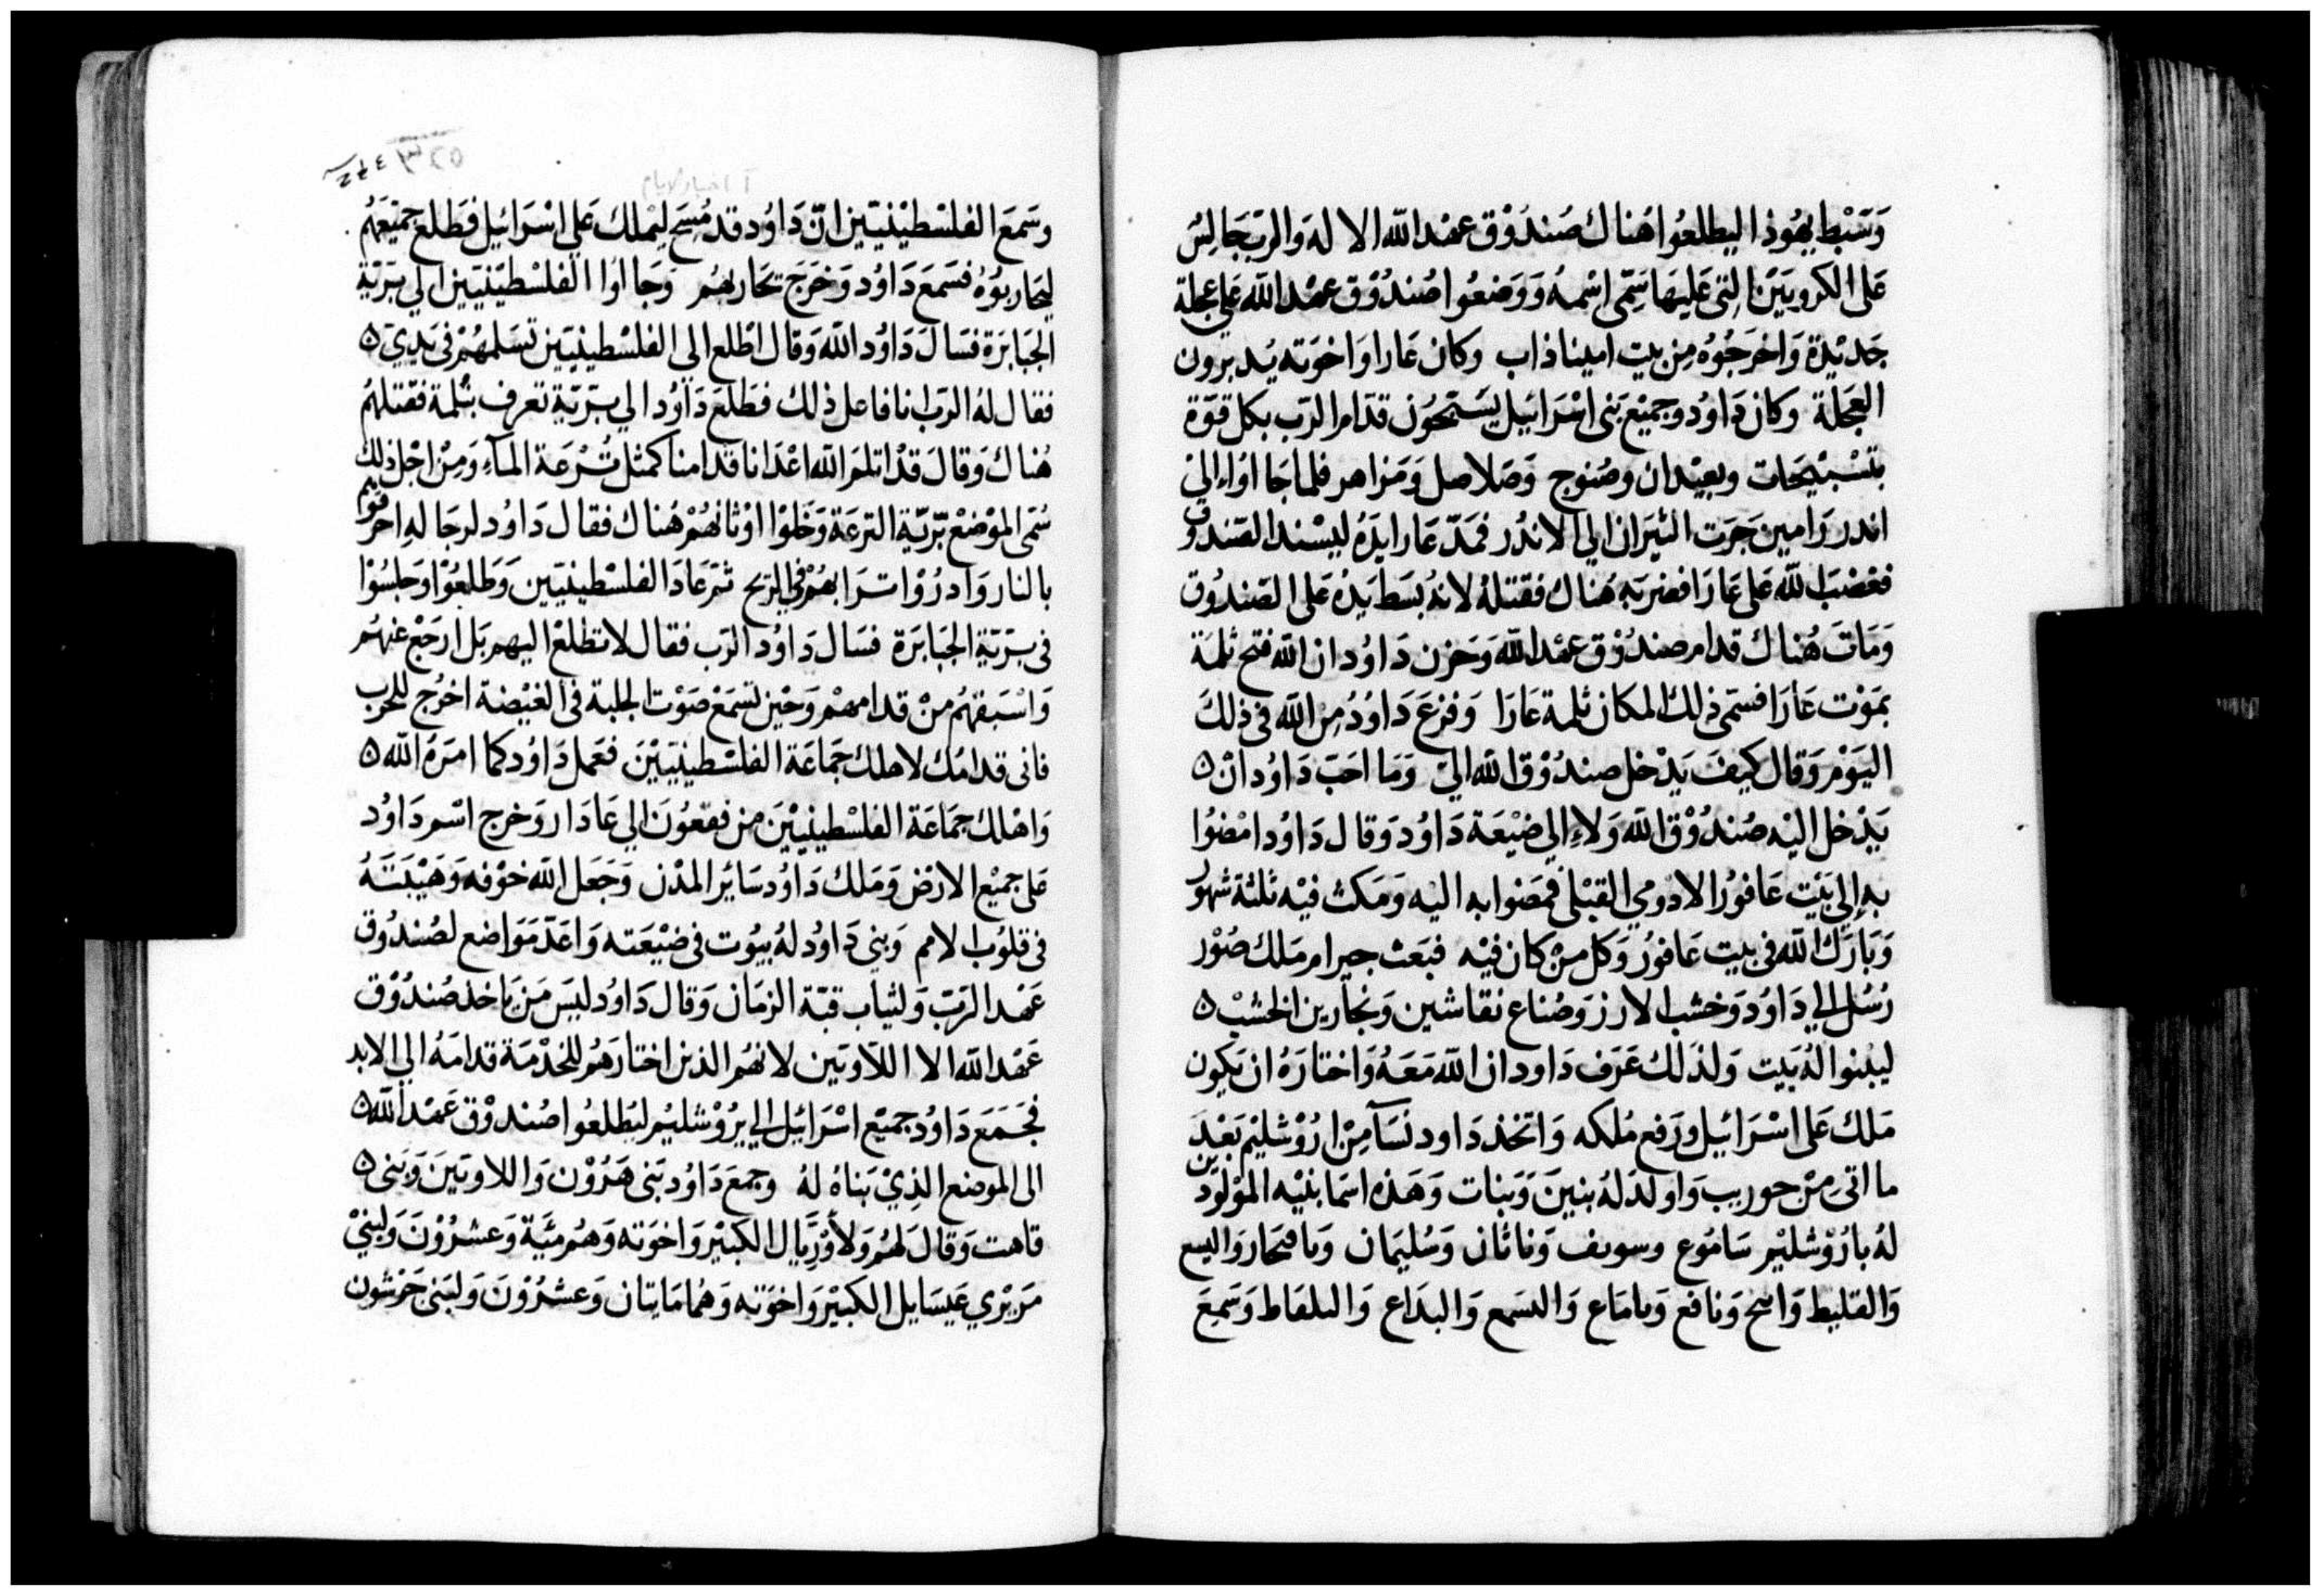 وَسَبْط يهُوذا ليطلعُوا هُناك صُندُوْق عهْد الله الاله وَالربّ جَالِسْ
عَلى الكروبيَيْن التى عَليهَا سَمّى اسْمهُ وَوَضعُوا صُندُوْق عهْد الله عَلي عجلة
جَديْدة وَاخرَجُوُه مِن بيت اميناذاب وكان عَازا وَاخوَته يُدبرون
العَجَلة وكان دَاوُد وجميْع بَنى اسْرَائيل يسَبّحُوُن قدّام الرَب بكل قوّة
بتسْبيْحَات وبعيْدان وصُنوج وَصَلاصل وَمَزاهر فلما جَااوُا الىٰ
اندر رَامين جَرَت الثيَران الي الاندُر فمَدّ عَازا يدَهُ ليسْند الصَندُوق
فغضبَ الله عَلى عَازَا فضربَه هُناك فقتلهُ لانهُ بسَط يَدهُ عَلى الصَندُوق
وَمَاتَ هُناك قدام صندُوْق عهْد الله وَحَزن دَاوُد ان الله فتح ثلمَة
بمَوْت عَازَا فسَمّى ذلك المكان ثلمة عَازَا وَفزعَ دَاوُدُ مِنَ الله فى ذلكَ
اليَوْم وَقال كيفَ يَدْخل صندُوْق الله اليّ وَمَا احَبّ دَاوُد انْ ن
يَدْخل اليْه صُندُوْق الله وَلاءِ الي ضيْعَة دَاوُد وَقال دَاوُد امْضوُا
به إلى بَيْت عَافوُر الادوُمي القبْلى فمضَوا به اليْه وَمَكث فيْه ثلثة شهوُر
وَبَارَك الله فى بيت عَافوُر وَكل مَنْ كان فيْه فبَعَث جيرام مَلك صُوْر
رُسُل الي دَاوُد وَخشب الارز وَصُناع نقاشين وَنجارين الخشبْ ن
ليبْنوا لهُ بَيت وَلذلك عَرَف دَاود ان الله مَعَهُ وَاختارَهُ ان يَكون
مَلك عَلى اسْرَائيل وَرَفع مُلكه وَاتخذ دَاود نسَآ مِنْ ارُوْشليْم بَعْد
ما اتىٰ مِنْ حوريب وَاولدَ لهُ بنينَ وَبنات وَهَذه اسْمَا بنيْه المَوْلوُدين
لهُ بارُوْشليْم سَامُوع وسوىف وَناثان وَسُليَمان وَيافحار وَاليسع
وَالفليط وَناجح وَنافع وَيامَاع وَاليسَمع وَاليدَاع وَاليلفاط وَسَمعَ
آ اخبار الايام
وسَمَعَ الفلسْطيْنيّين انّ دَاوُد قد مُسِحَ ليْملك عَلي اسْرَائيل فطلع جميْعَهُم
ليحَاربُوُهُ فسَمعَ دَاوُد وَخرَجَ يحَاربهُم وَجَااوُا الفلسْطيْنيّين الى بَرّيّة
الجبَابرَة فسَال دَاوُد الله وَقال اطْلع الى الفلسْطينييّن تسَلمهُمْ فى يَدِيَ ن
فقال لهُ الربّ انا فاعل ذلك فطلعَ دَاوُد الي بَرّيّة تعرف بثلمة فقتلهُم
هُناك وَقالَ قدْ اثلمَ الله اعْدَانا قدامنا كمثل تُرْعَة المآءِ وَمِنْ اجْل ذلك
سُمى المَوْضعْ برّيّة الترعَة وَخَلوْا اوْثانهُمْ هُناك فقال دَاوُد لرجَالهِ احرقوُاهُم
بالنار وَادرُوْا ترَابهُمْ فى الرّيح ثمّ عَادَ الفلسْطينيّين وَطلعُوْا وَجلسُوْا
فى بَرّيّة الجبَابرَة فسَال دَاوُد الرَب فقال لا تطلعْ اليهم بَل ارجَعْ عنهُم
وَاسْبقهُم مِنْ قدامهمْ وَحيْن تسْمَعْ صَوْت الجلبة فى الغيْضة اخرُج للحَرب
فانى قدامَك لاهلك جَمَاعَة الفلسْطينييّنَ فعَمل دَاوُد كما امرَهُ الله ن
وَاهْلك جمَاعَة الفلسْطينيّيْنَ من فقعُوْنَ الي عَادَار وَخرج اسْم دَاوُد
عَلى جميْع الارْض وَمَلك دَاوُد سَائر المدْن وَجَعَل الله خوْفه وَهَيْبَتَهُ
فى قلوُب الامم وَبني دَاوُد لهُ بيُوت فى ضيْعَته وَاعَدّ مَوَاضع لصُندُوْق
عَهْد الرَبّ وَلثياب قبّة الزمَان وَقال دَاوُد ليسَ مَن يَاخذ صُندُوْق
عَهْد الله الا اللاَوييّن لانهُم الذين اختارَهُم للخدْمَة قدامَهُ الي الابد
فجَمَعَ دَاوُد جميْع اسْرَائيل الي يرُوْشليْم ليَطلعُوا صُندوْق عَهْد الله ن
الى الموضع الذِيْ بَناهُ لهُ وجمعَ دَاوُد بَنى هَرُوْن وَاللاويَينَ وَبَنى ن
قاهت وَقالَ لهُم وَلأوْريَّال الكبيْر وَاخوَته وَهُم مئيَة وَعشرُوْنَ وَلبَنيْ
مَريْري عَيسَايل الكبيْر وَاخوَته وَهُما مَايتان وَعشرُوْنَ وَلبَنى جَرْشون